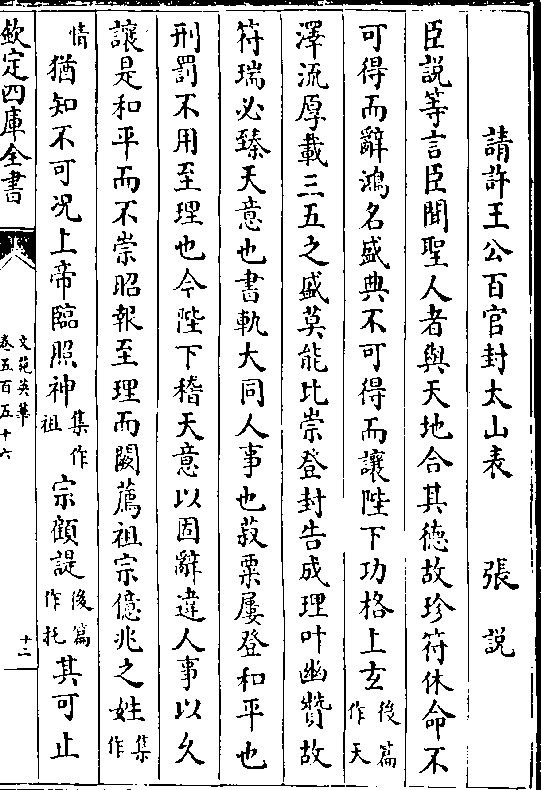 請許王公百官封太山表 張說
臣說等言臣聞聖人者與天地合其德故珍符休命不
可得而辭鴻名盛典不可得而讓陛下功格上玄後篇作天
澤流厚載三五之盛莫能比崇登封告成理叶幽贊故
符瑞必臻天意也書軌大同人事也菽粟屢登和平也
刑罰不用至理也今陛下稽天意以固辭違人事以久
讓是和平而不崇昭報至理而闕薦祖宗億兆之姓集作
情猶知不可況上帝臨照神集作祖宗顧諟後篇作托其可止
欽定四庫全書
文苑英華
卷五百五十六
十二